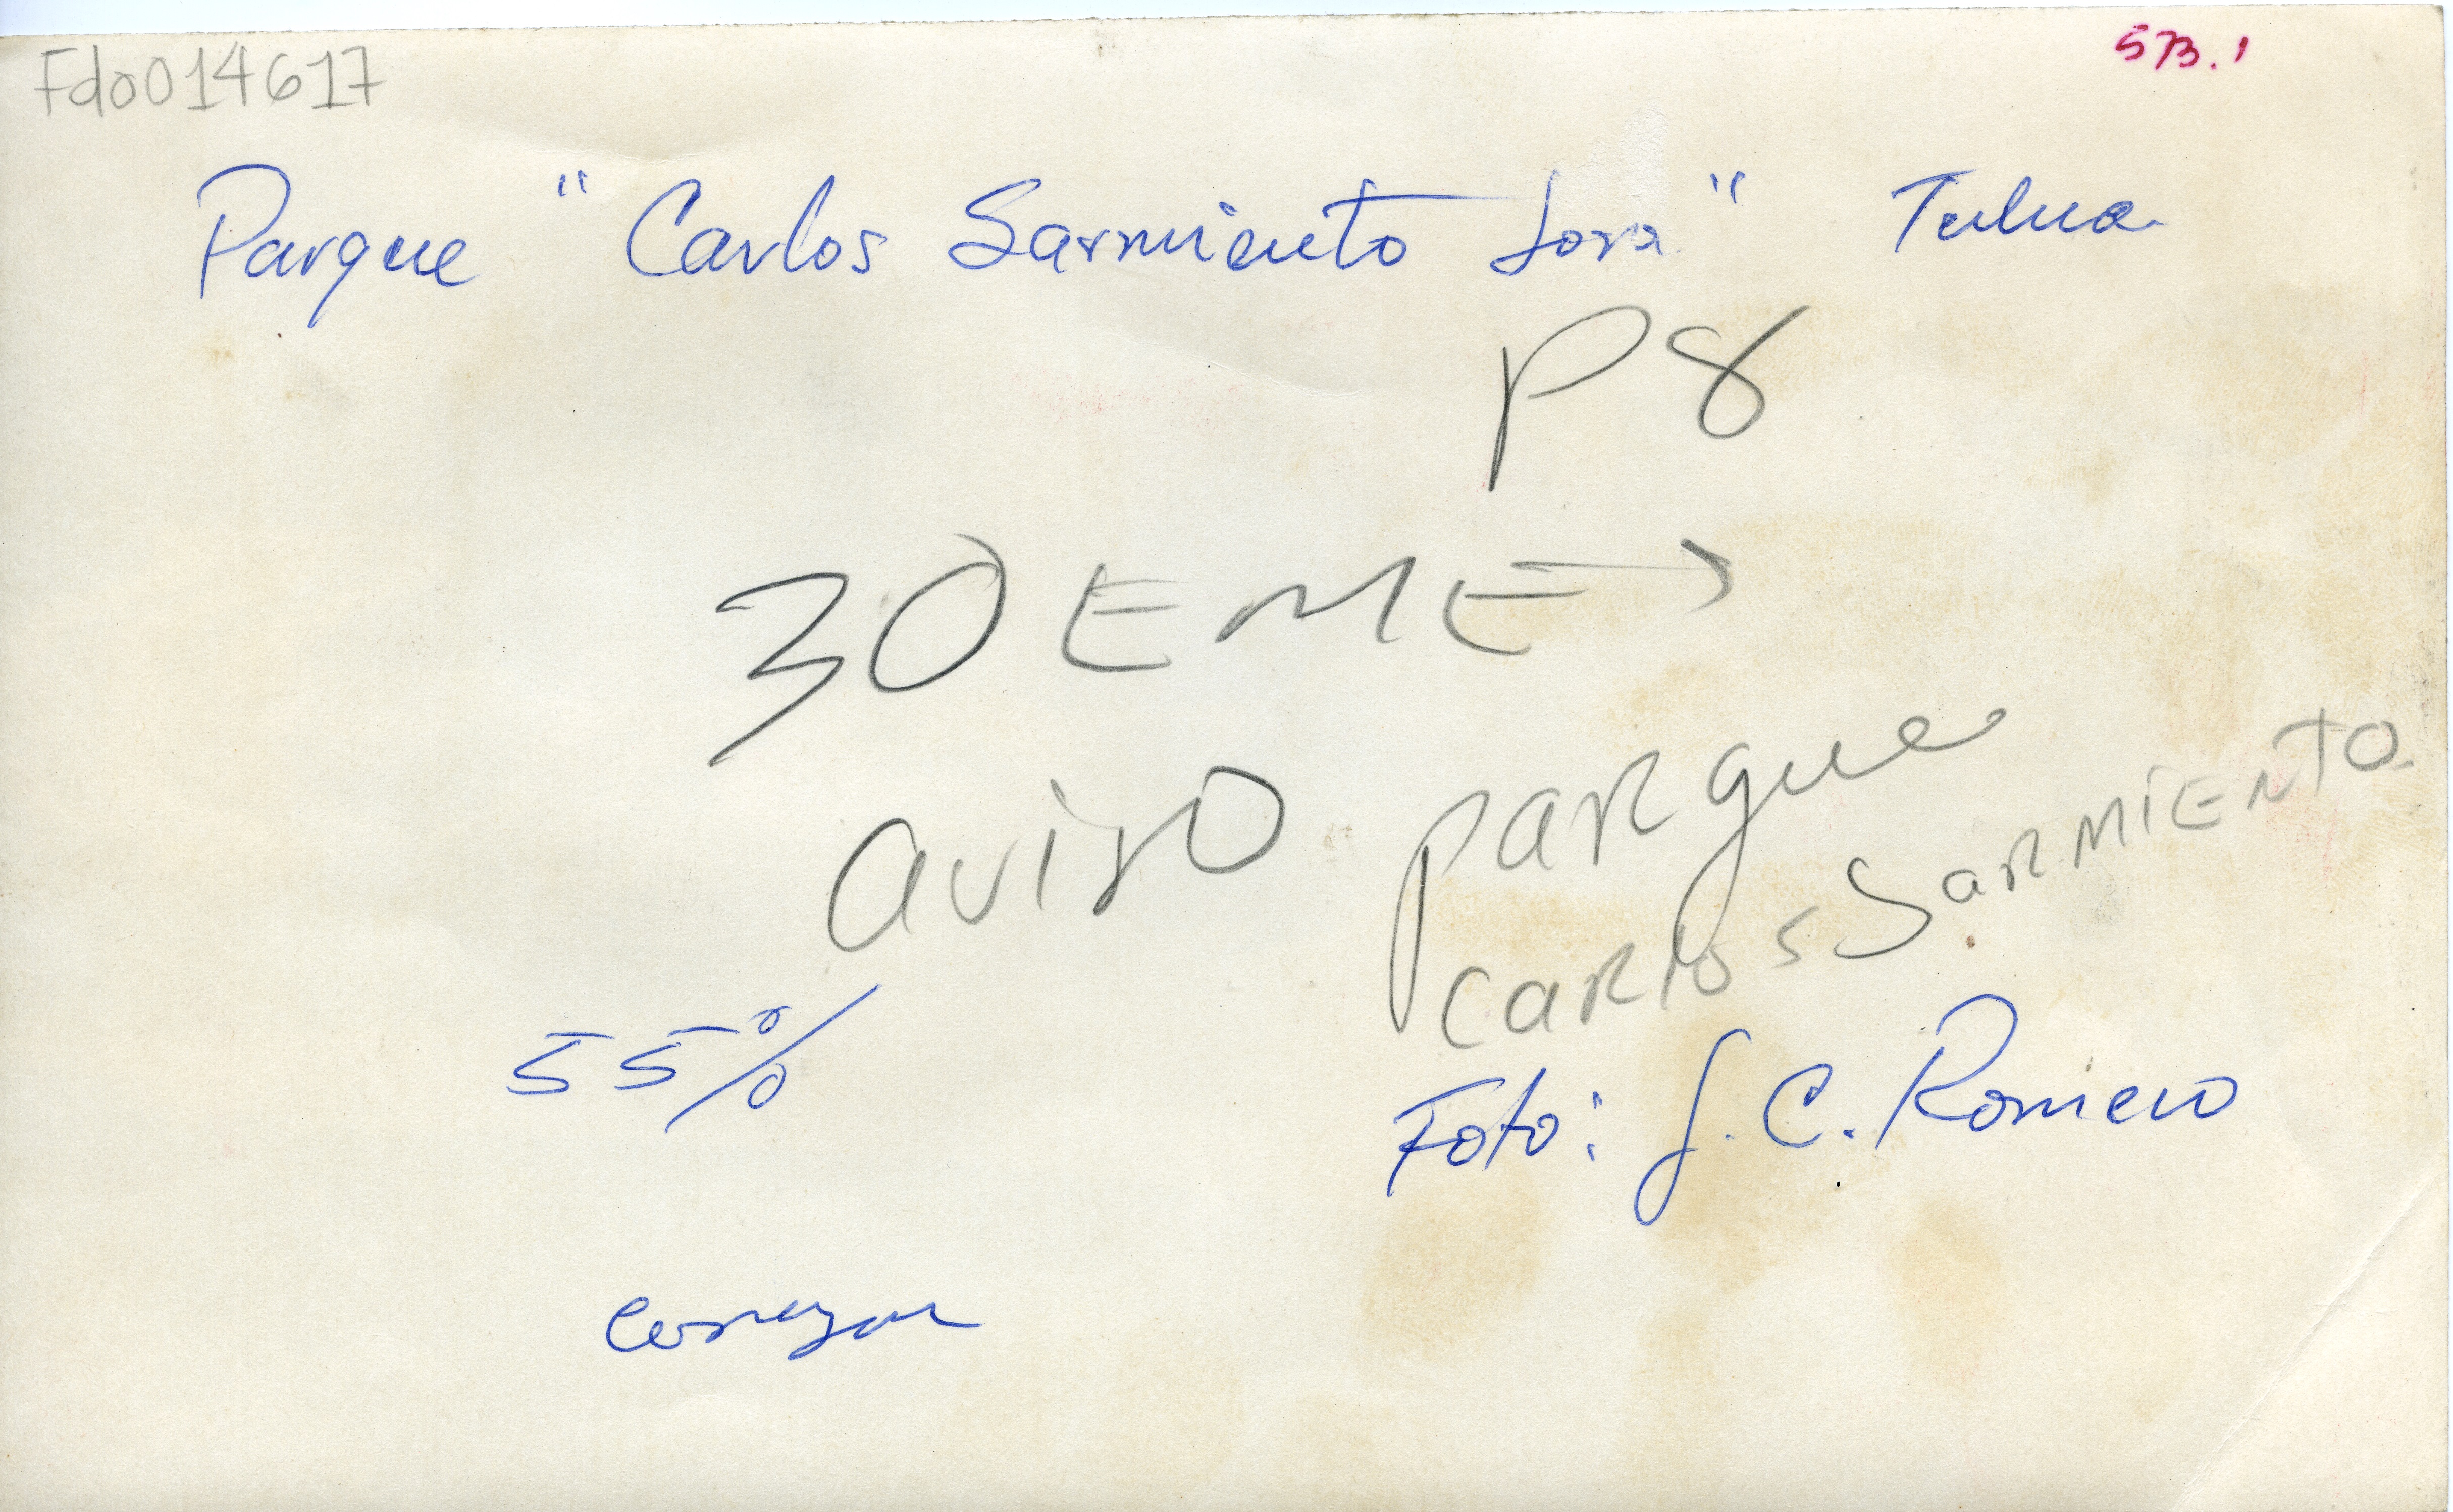 Fdo014617
573.1
Parque "Carlos Sarmiento Lora" Tulua
P8
30 EME
aviso parque
Carlos Sarmiento
55%
Foto: J. C. Romero